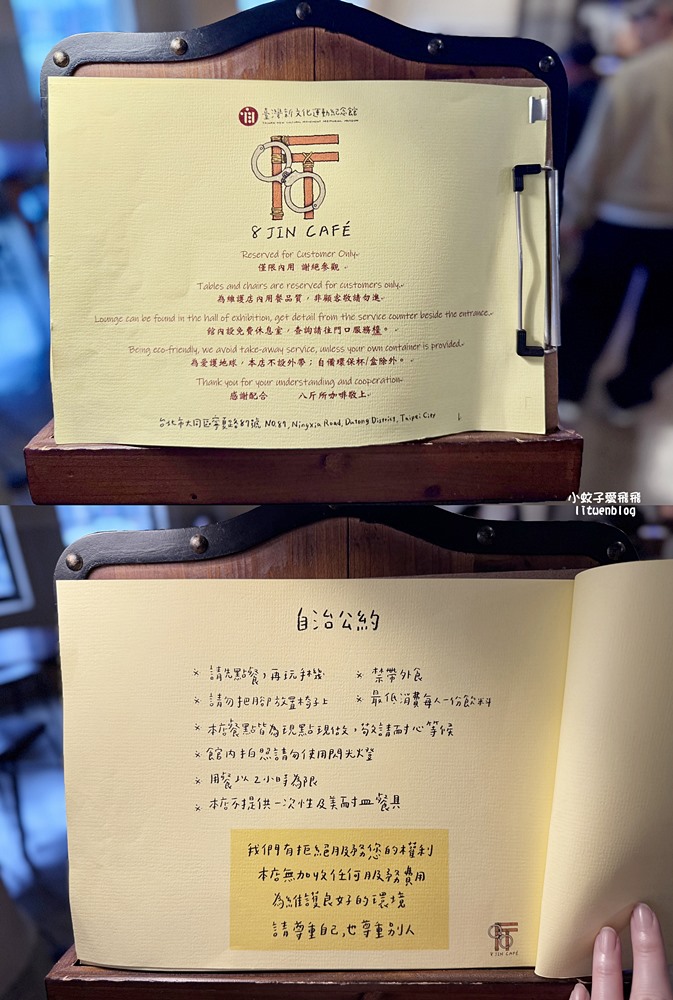 臺灣新文化運動紀念館
TAIWAN NEW CULTURAL MOVEMENT MEMORIAL MUSEUM
8 JIN CAFÉ
Reserved for Customer Only.
僅限內用 謝絕參觀。
Tables and chairs are reserved for customers only.
為維護店內用餐品質，非顧客敬請勿進。
Lounge can be found in the hall of exhibition, get detail from the service counter beside the entrance.
館內設免費休息室，查詢請往門口服務檯。
Being eco-friendly, we avoid take-away service, unless your own container is provided.
為愛護地球，本店不設外帶；自備環保杯/盒除外。
Thank you for your understanding and cooperation.
感謝配合 八斤所咖啡敬上
台北市大同區寧夏路87號 NO.87, Ningxia Road, Datong District, Taipei City
小蚊子愛飛飛
lituenblog
自治公約
※ 請先點餐，再玩手機 ※ 禁帶外食
※ 請勿把腳放置椅子上 ※ 最低消費每人一份飲料
※ 本店餐點皆為現點現做，敬請耐心等候
※ 館內拍照請勿使用閃光燈
※ 用餐以2小時為限
※ 本店不提供一次性及美耐皿餐具
我們有拒絕服務您的權利
本店無加收任何服務費用
為維護良好的環境
請尊重自己,也尊重別人
8 JIN CAFÉ